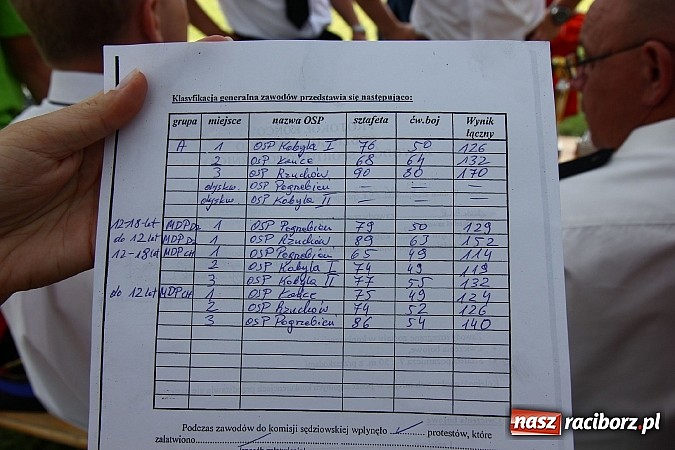 Klasyfikacja generalna zawodów przedstawia się następująco:
grupa miejsce nazwa OSP sztafeta ćw.boj Wynik łączny
A 1 OSP Kobyla I 76 50 126
2 OSP Łańce 68 64 132
3 OSP Rzuchów 90 80 170
dyskw. OSP Pogrzebień — — —
dyskw. OSP Kobyla II — — —
12-18-lat MDP Dz 1 OSP Pogrzebień 79 50 129
do 12 lat MDP Dz 1 OSP Rzuchów 89 63 152
12-18 lat MDP CH 1 OSP Pogrzebień 65 49 114
2 OSP Kobyla I 74 49 119
3 OSP Kobyla II 77 55 132
do 12 lat MDP CH 1 OSP Łańce 75 49 124
2 OSP Rzuchów 74 52 126
3 OSP Pogrzebień 86 54 140
Podczas zawodów do komisji sędziowskiej wpłynęło protestów, które
załatwiono
nasz raciborz.pl